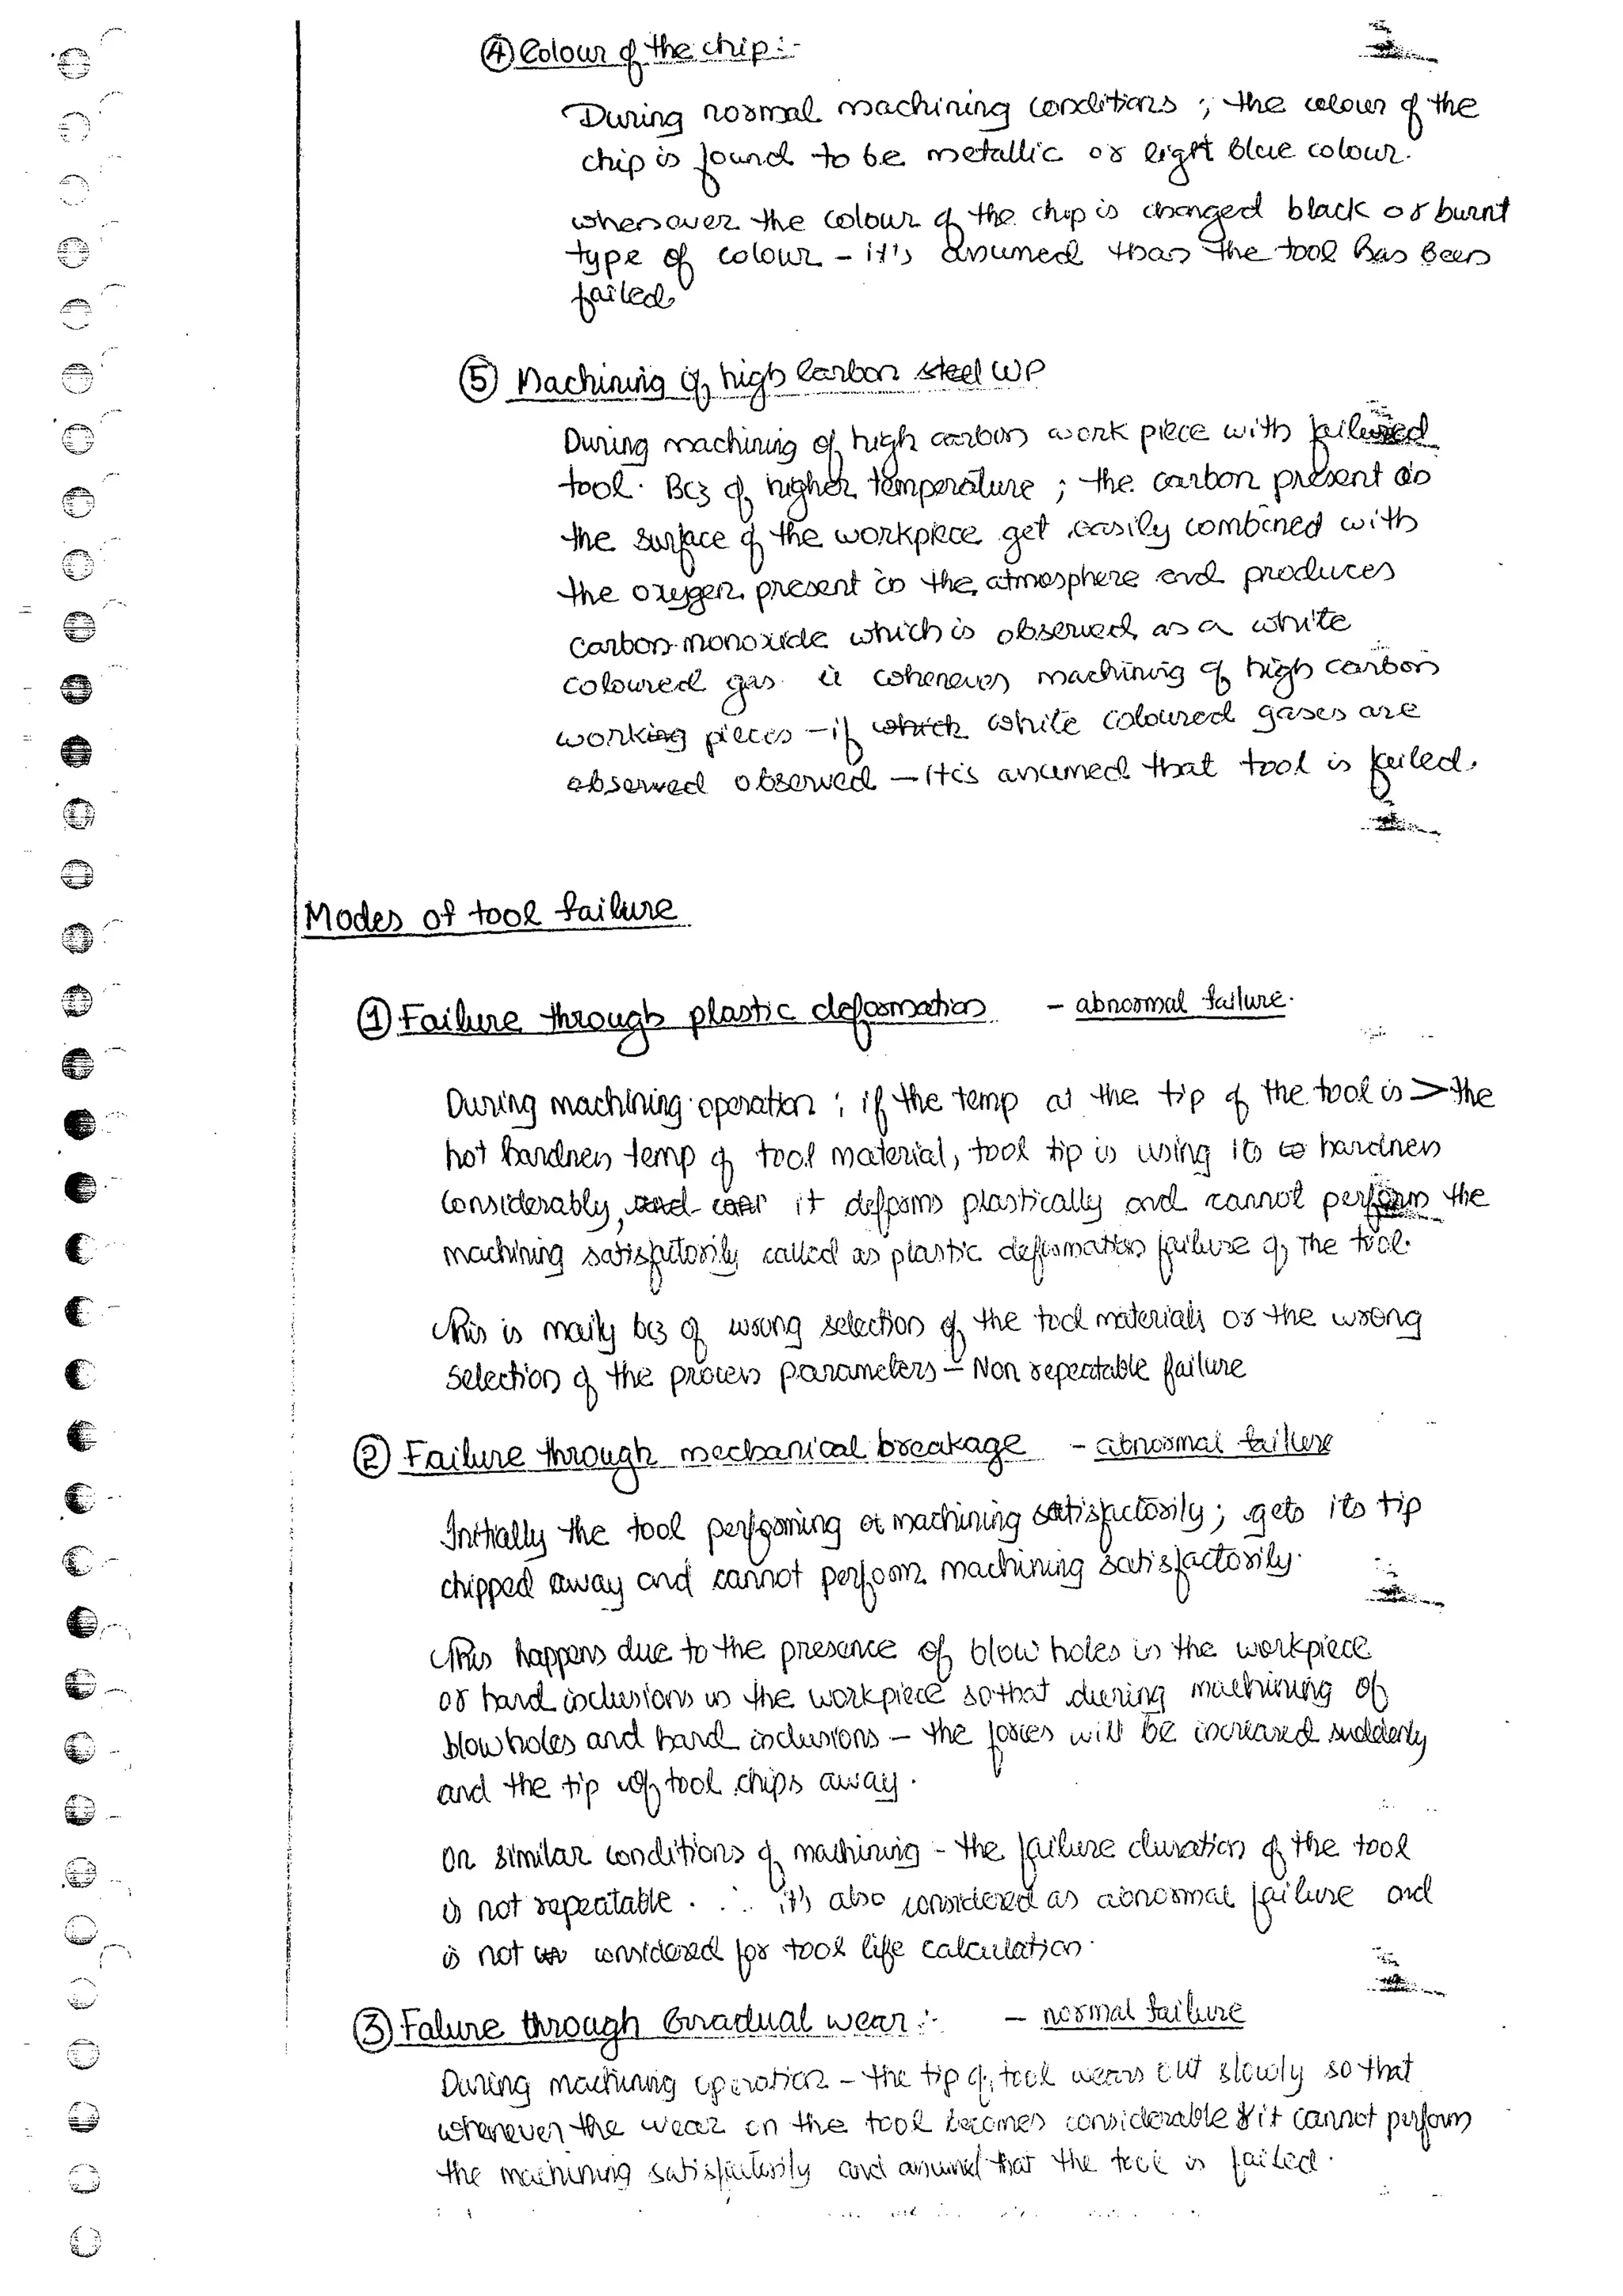 ④ Colour of the chip :-
During normal machining conditions ; the colour of the
chip is found to be metallic or light blue colour.
whensover the colour of the chip is changed black or burnt
type of colour - it's assumed than the tool has been
failed
⑤ Machining of high Carbon steel WP
During machining of high carbon work piece with failured
tool. Bcz of higher temperature ; the carbon present in
the surface of the workpiece get easily combined with
the oxygen present in the atmosphere and produces
carbon monoxide which is observed as a white
coloured gas. ie whenever machining of high carbon
working pieces - if which white coloured gases are
observed observed - it is assumed that tool is failed.
Modes of tool failure
① Failure through plastic deformation - abnormal failure.
During machining operation ; if the temp at the tip of the tool is > the
hot hardness temp of tool material, tool tip is using its hardness
considerably, and it deforms plastically and cannot perform the
machining satisfactorily called as plastic deformation failure of the tool.
This is maily bcz of wrong selection of the tool materials or the wrong
selection of the process parameters - Non repeatable failure
② Failure through mechanical breakage - abnormal failure
Initially the tool performing machining satisfactorily ; gets its tip
chipped away and cannot perform machining satisfactorily.
This happens due to the presence of blow holes in the workpiece
or hard inclusions in the workpiece so that during machining of
blow holes and hard inclusions - the forces will be increased suddenly
and the tip of tool chips away.
On similar conditions of machining - the failure duration of the tool
is not repeatable. ∴ it's also considered as abnormal failure and
is not considered for tool life calculation.
③ Falure through Gradual wear :- - normal failure
During machining operation - the tip of tool wears out slowly so that
whenever the wear on the tool becomes considerable & it cannot perform
the machining satisfactorily and assumed that the tool is failed.